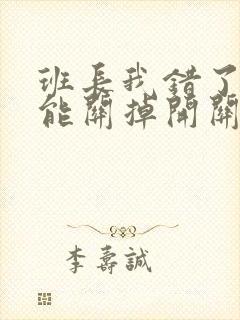 班長我錯了
能關掉開關
李壽誠